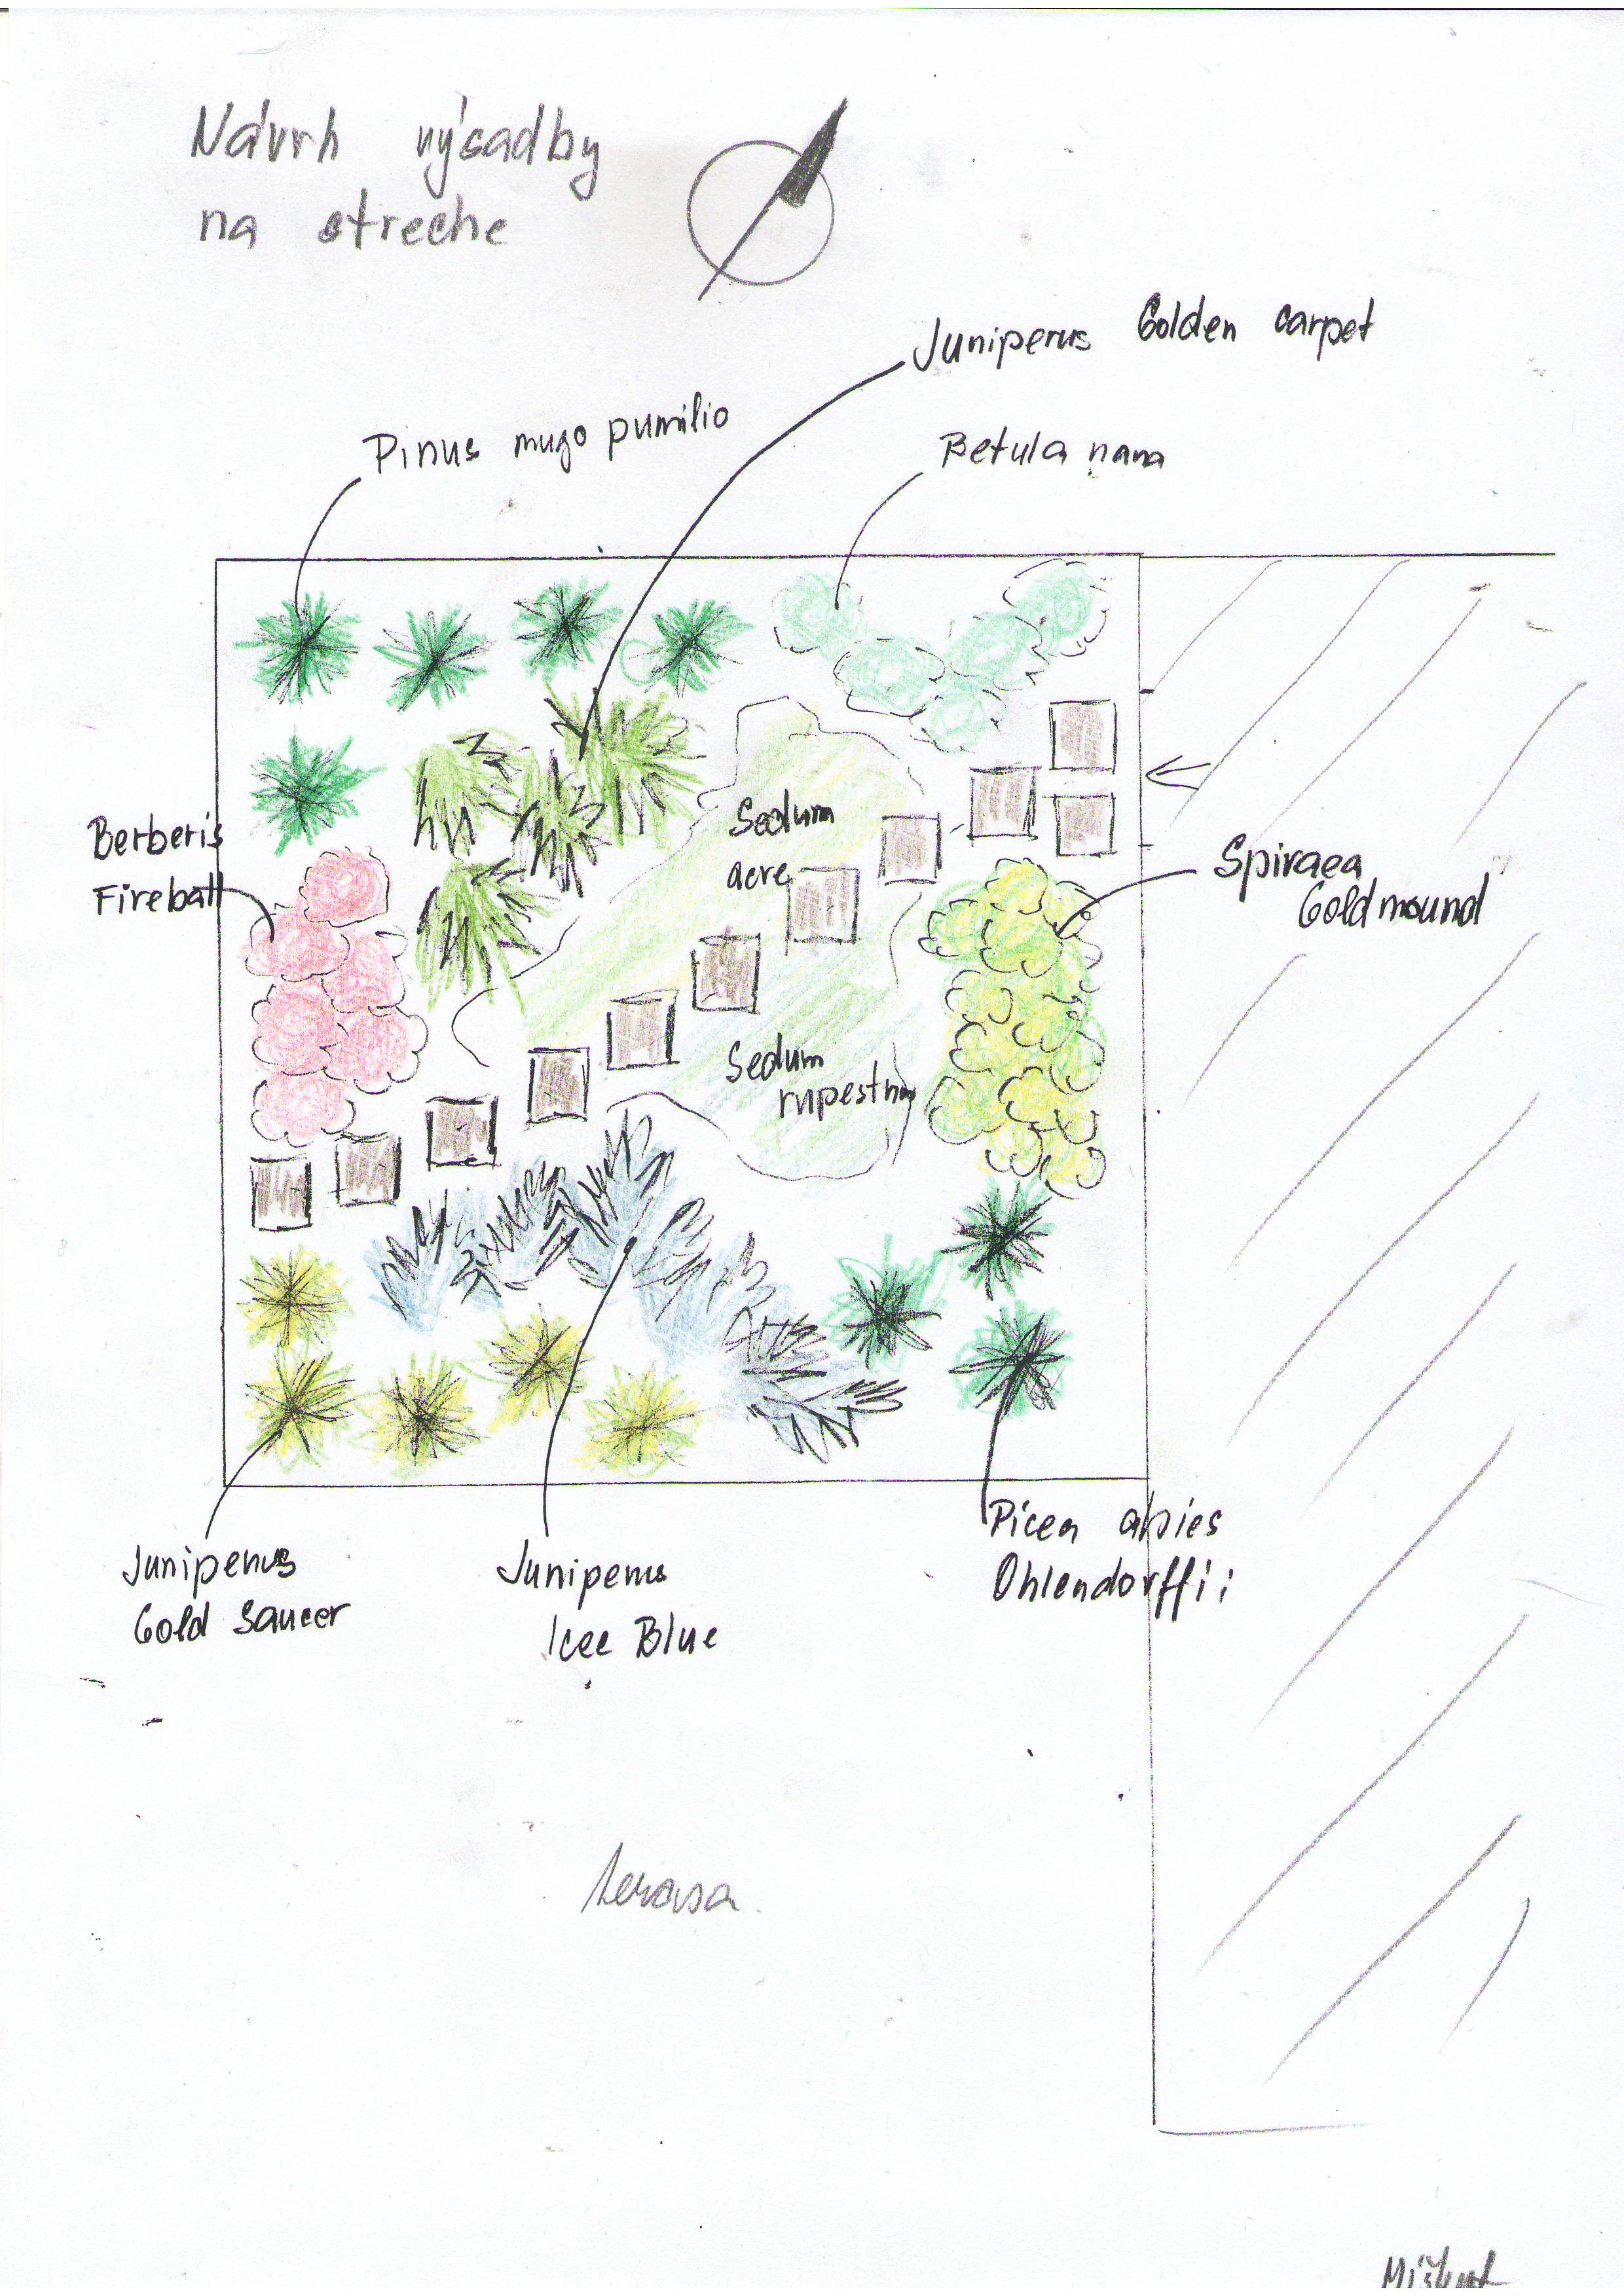 Návrh výsadby
na streche
Juniperus Golden carpet
Pinus mugo pumilio
Betula nana
Berberis
Fireball
Sedum
acre
Spiraea
Goldmound
Sedum
Picea abies
Ohlendorffii
Juniperus
Gold Saucer
Juniperus
Icee Blue
terasa